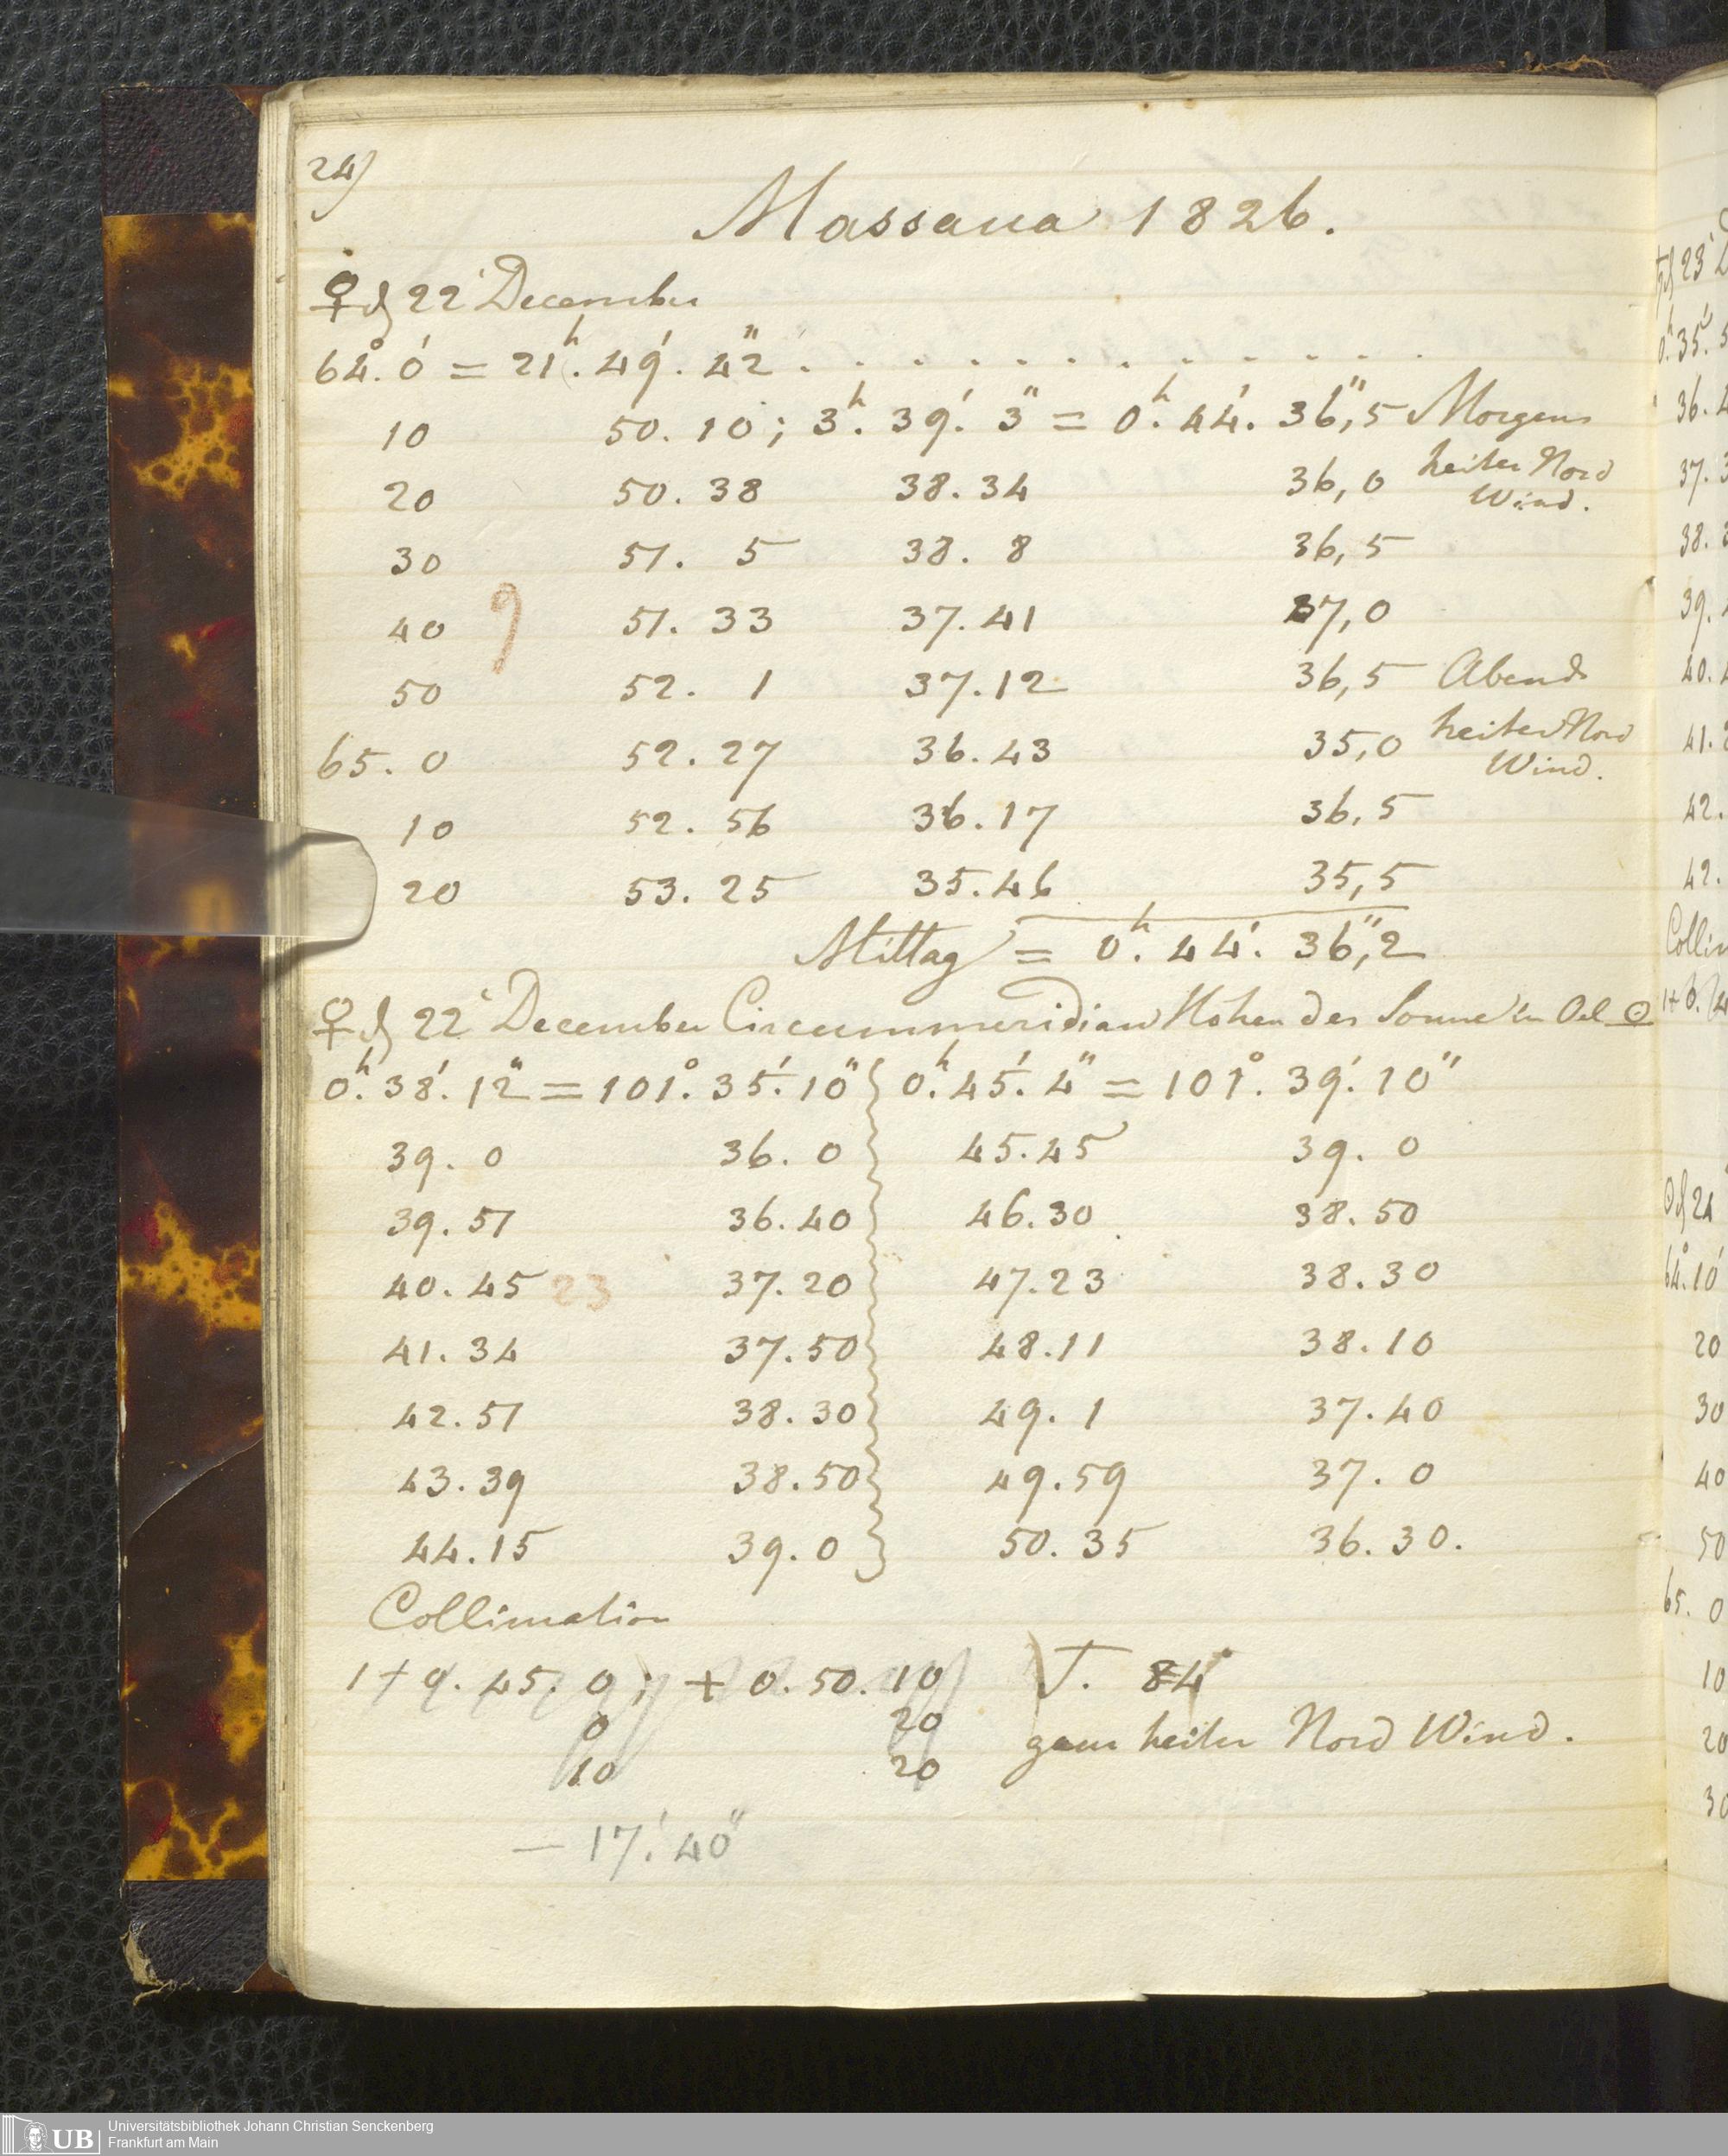 24)
Massaua 1826.
♀ d 22' December
64°. 0' = 21h. 49'. 42" . . . . . . . . . . . .
10 50. 10; 3h. 39'. 3" = 0h. 44'. 36",5 Morgens
20 50. 38 38. 34 36, 0 heiter Nord
Wind.
30 51. 5 38. 8 36, 5
40 51. 33 37. 41 37, 0
9
50 52. 1 37. 12 36, 5 Abends
65. 0 52. 27 36. 43 35, 0 heiter Nord
Wind.
10 52. 56 36. 17 36, 5
20 53. 25 35. 46 35, 5
Mittag = 0h. 44'. 36",2
♀ d 22' December Circummeridian Höhen der Sonne in Oel ☉
0h. 38'. 12" = 101°. 35'. 10" } 0h. 45'. 4" = 101°. 39'. 10"
39. 0 36. 0 45. 45 39. 0
39. 51 36. 40 46. 30 38. 50
40. 45 23 37. 20 47. 23 38. 30
41. 34 37. 50 48. 11 38. 10
42. 51 38. 30 49. 1 37. 40
43. 39 38. 50 49. 59 37. 0
44. 15 39. 0 50. 35 36. 30.
Collimation
1+ 9. 45. 0; + 0. 50. 10 T. 84°
0 20 ganz heiter Nord Wind.
10 20
— 17'. 40"
UB Universitätsbibliothek Johann Christian Senckenberg
Frankfurt am Main